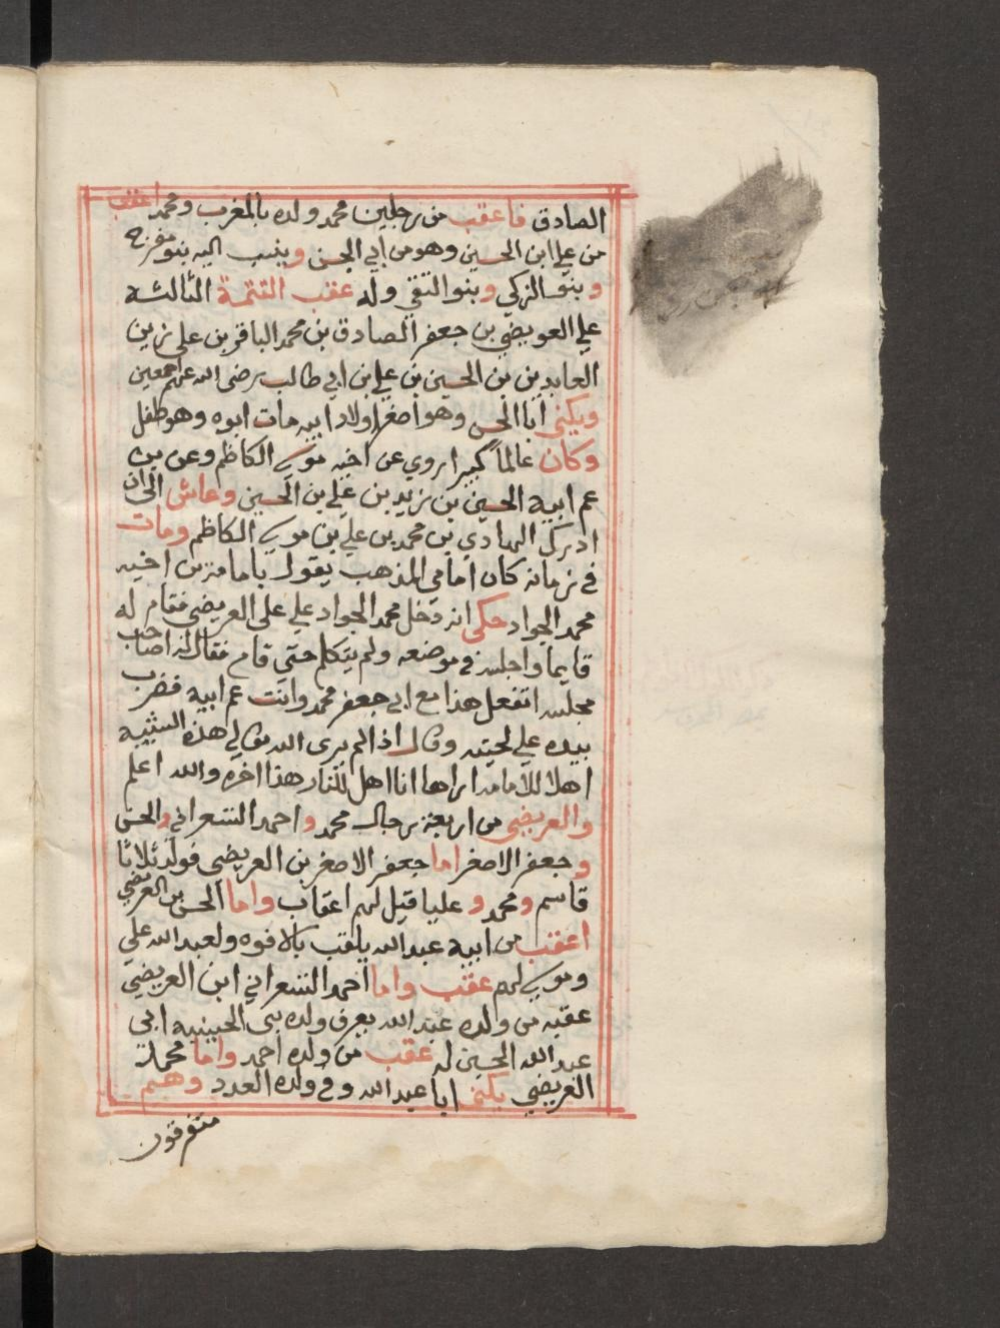 الصادق فاعقب من رجلين محمد ولده بالمغرب ومحمد اعقب
من علي ابن الحسين وهو من ابي الحسن وينسب اليه بنو مفرح
وبنو الزكي وبنو التقي وله عقب التتمة الثالثة
علي العريضي بن جعفر الصادق بن محمد الباقر بن علي زين
العابدين بن الحسين بن علي ابن ابي طالب رضى الله عنهم اجمعين
ويكنى ابا الحسن وهو اصغر اولاد ابيه مات ابوه وهو طفل
وكان عالما كبيرا روي عن اخيه موسى الكاظم وعن بن
عم ابيه الحسين بن زيد بن علي بن الحسين وعاش الى ان
ادرك الهادي بن محمد بن علي بن موسى الكاظم ومات
في زمانه كان امامي المذهب يقول بامامة بن اخيه
محمد الجواد حكى انه دخل محمد الجواد علي على العريضي فقام له
قايما واجلسه في موضعه ولم يتكلم حتي قام فقال له اصحاب
مجلسه اتفعل هذا مع ابي جعفر محمد وانت عم ابيه فضرب
بيده علي لحيته وقال اذا لم يرى الله تعالى هذه الشيبه
اهلا للامامه اراها انا اهل للنار هذا اخره والله اعلم
والعريضي من اربعة رجال محمد واحمد الشعراني والحسن
وجعفر الاصغر اما جعفر الاصغر بن العريضي فولد ثلاثا
قاسم ومحمد وعليا قيل لهم اعقاب واما الحسن بن العريضي
اعقب من ابيه عبد الله يلقب بالافوه ولعبد الله علي
وموسى لهم عقب واما احمد الشعراني ابن العريضي
عقبه من ولده عبد الله يعرف ولده بنى الحسينيه ابي
عبد الله الحسين له عقب من ولده احمد واما محمد بن
العريضي يكنى ابا عبد الله وفي ولده العدد وهم
متفرقون